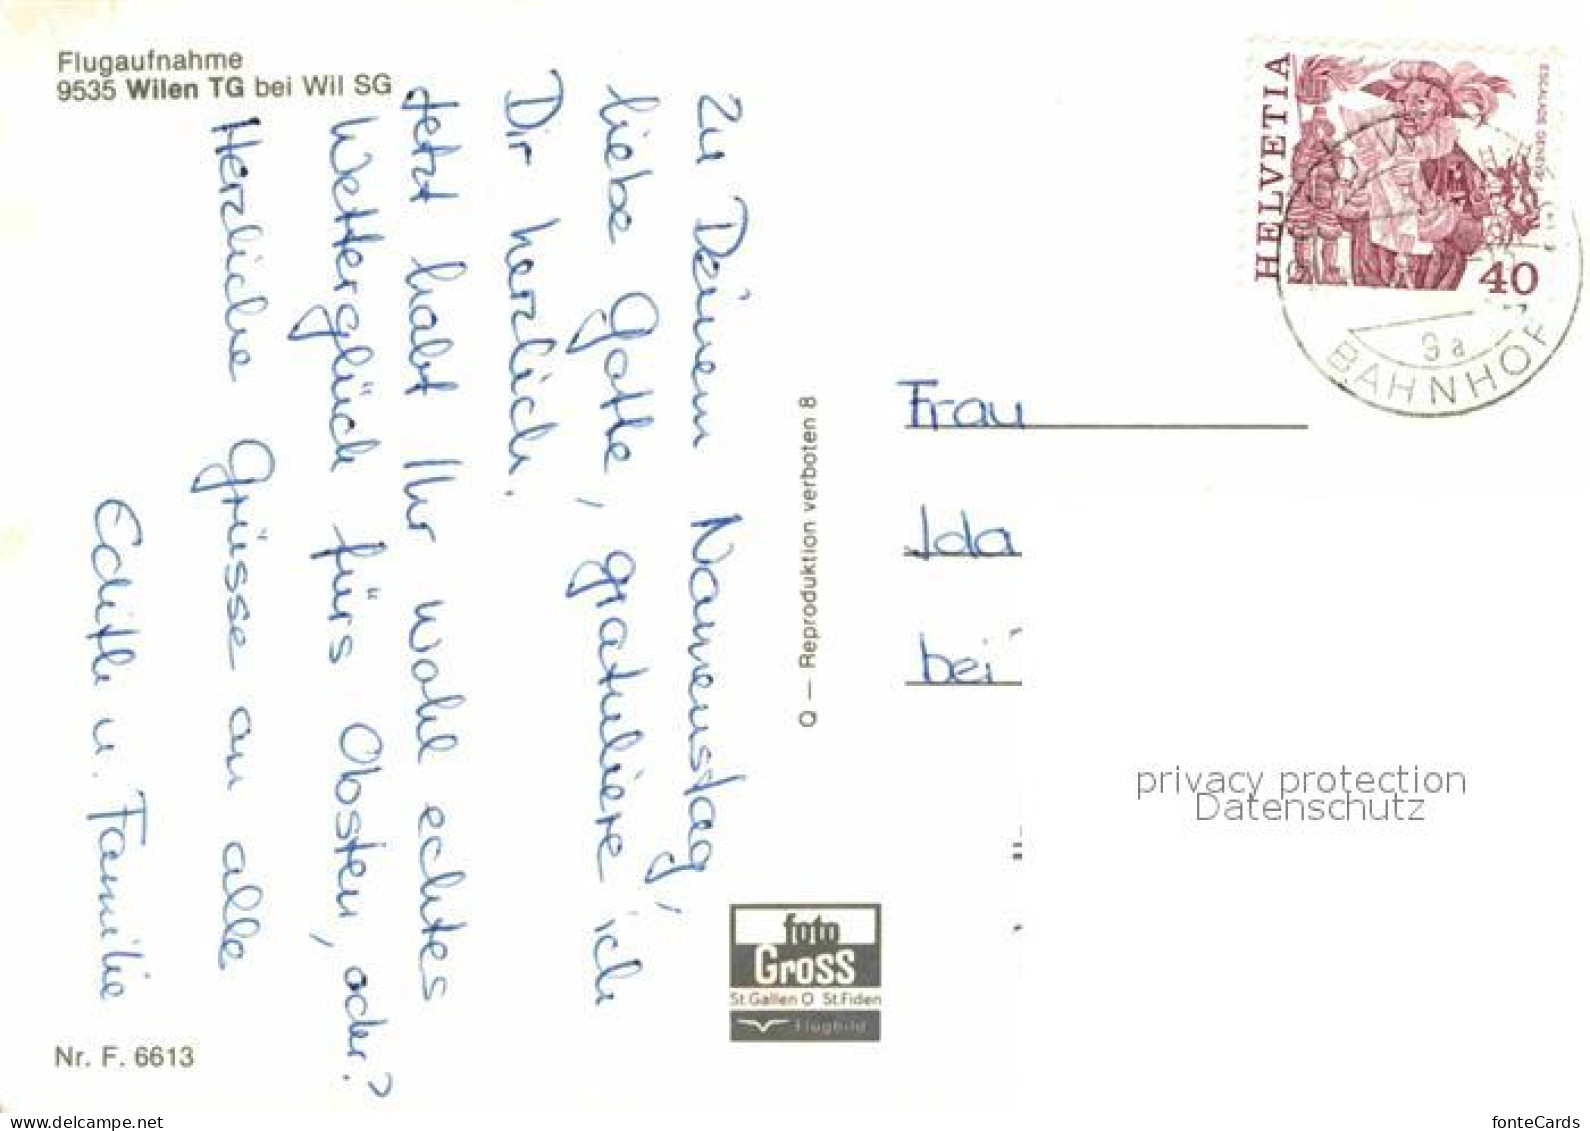 Flugaufnahme
9535 Wilen TG bei Wil SG
Zu Deinem Namenstag,
liebe Gotte, gratuliere ich
Dir herzlich.
Jetzt habt Ihr wohl echtes
Wetterglück fürs Obsten, oder?
Herzliche Grüsse an alle
Edith u. Familie
Nr. F. 6613
Q — Reproduktion verboten 8
foto
Gross
St.Gallen O St.Fiden
Flugbild
HELVETIA
ESCALADE GENEVE
40
9a
BAHNHOF
Frau
Ida
bei
privacy protection
Datenschutz
www.delcampe.net
fonteCards